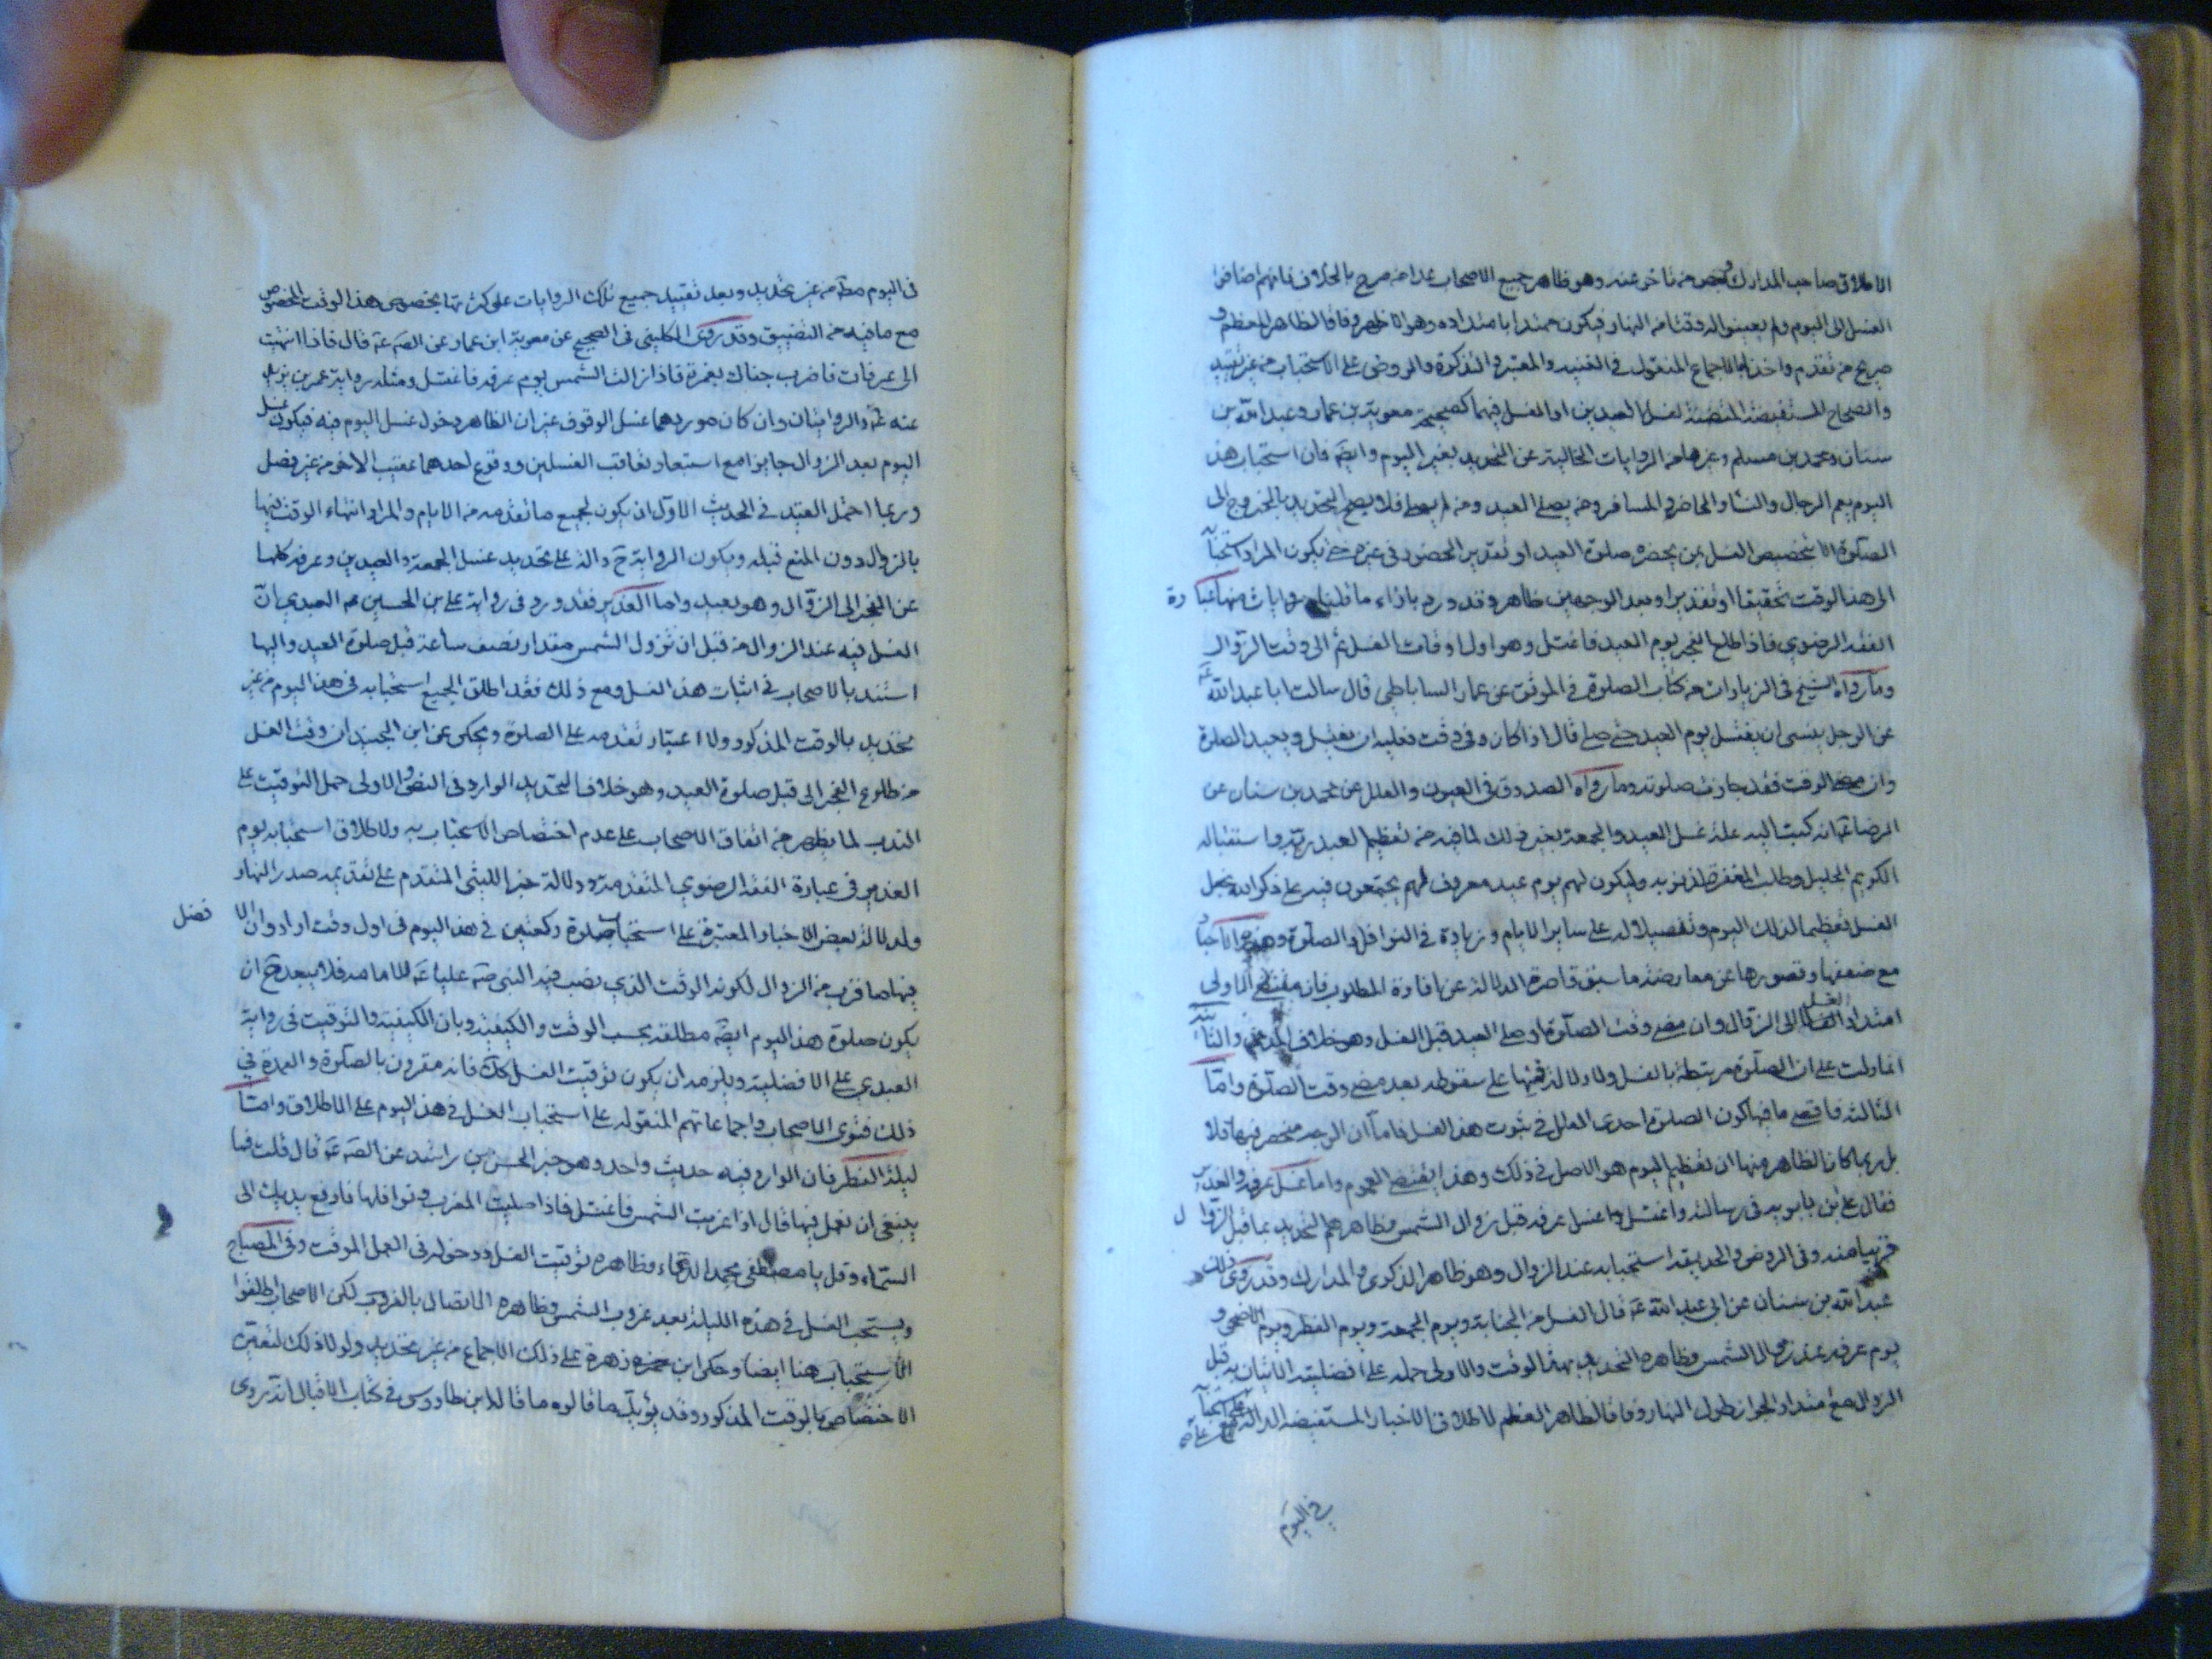 الاطلاق صاحب المدارك وبعض من تأخر عنه وهو ظاهر جميع الاصحاب عدا من صرح بالخلاف فانهم اضافوا
الغسل الى اليوم ولم يعينوا له وقتا من النهار فيكون ممتدا بامتداده وهو الاظهر وفاقا لظاهر المعظم و
صريح من تقدم واخذا بالاجماع المنقول في الغنيه والمعتبر والتذكرة والروض على الاستحباب من غير تقييد
والصحاح المستفيضة المتضمنة لغسل العيدين او الغسل فيهما كصحيحة معوية بن عمار وعبد الله بن
سنان ومحمد بن مسلم وغيرها من الروايات الخالية عن التحديد بغير اليوم وايضا فان استحباب هذا
اليوم يعم الرجال والنساء والحاضر والمسافر ومن يصلي العيد ومن لم يصل فلا يصح التحديد بالخروج الى
الصلوة الا بتخصيص الغسل بمن يحضره صلوة العيد او تقدير الحضور في غيره حتى يكون المراد استحبا
الى هذا الوقت تحقيقا او تقديرا وبعد الوجهين ظاهر وقد ورد بازاء ما قلناه روايات منها عبارة
الفقه الرضوي فاذا طلع الفجر يوم العيد فاغتسل وهو اول اوقات الغسل ثم الى وقت الزوال
وما رواه الشيخ في الزيادات من كتاب الصلوة في الموثق عن عمار الساباطي قال سالت ابا عبد الله عـ
عن الرجل ينسى ان يغتسل يوم العيد حتى صلى قال اذا كان في وقت فعليه ان يغتسل ويعيد الصلوة
وان مضى الوقت فقد جازت صلوته وما رواه الصدوق في العيون والعلل عن محمد بن سنان عن
الرضا عـ انه كتب اليه علة غسل العيد والجمعة بغير ذلك لما فيه من تعظيم العبد ربه واستقباله
الكريم الجليل وطلب المغفرة لذنوبه وليكون لهم يوم عيد معروف لهم يجتمعون فيه على ذكر الله فجعل
الغسل تعظيما لذلك اليوم وتفضيلا له على ساير الايام وزيادة في النوافل والصلوة وهذه الاخبار
مع ضعفها وقصورها عن معارضة ما سبق قاصرة الدلالة عن افادة المطلوب فان مقتضى الاولى
امتداد الغسل الى الزوال وان مضى وقت الصلوة او صلى العيد قبل الغسل وهو خلاف المدعى والثانية
انما دلت على ان الصلوة مرتبطة بالغسل ولا دلالة فيها على سقوطه بعد مضى وقت الصلوة واما
الثالثة فاقصى ما فيها كون الصلوة احدى العلل في ثبوت هذا الغسل فاما ان الوجه منحصر فيها فلا
بل ربما كان الظاهر منها ان تعظيم اليوم هو الاصل في ذلك وهذا يقتضى العموم واما غسل عرفه والغدير
فقال علي بن بابويه في رسالته واغتسل واغسل عرفه قبل زوال الشمس وظاهرهم التحديد بما قبل الزوال
قريبا منه وفي الروض والحديقه استحبابه عند الزوال وهو ظاهر الذكرى والمدارك وقد روى ذلك
عبد الله بن سنان عن ابي عبد الله عـ قال الغسل من الجنابة ويوم الجمعة ويوم الفطر ويوم الاضحى و
يوم عرفه عند زوال الشمس وظاهره التحديد بهذا الوقت والاولى حمله على افضلية الاتيان به قبل
الزوال مع امتداد الجواز طول النهار وفاقا لظاهر المعظم لاطلاق الاخبار المستفيضة الدالة على استحبا
في اليوم
في اليوم مطلقا من غير تحديد وبعد تقييد جميع تلك الروايات على كثرتها بخصوص هذا الوقت المخصوص
مع ما فيه من التضييق وقد روى الكليني في الصحيح عن معوية ابن عمار عن الصه عـ قال فاذا انتهيت
الى عرفات فاضرب خباك بنمرة فاذا زالت الشمس يوم عرفه فاغتسل ومثله رواية عمر بن يزيد
عنه عـ والروايتان وان كان موردهما غسل الوقوف غير ان الظاهر دخول غسل اليوم فيه فيكون غسل
اليوم بعد الزوال جايزا مع استبعاد تعاقب الغسلين ووقوع احدهما عقيب الاخر من غير فصل
وربما احتمل القيد في الحديث الاول ان يكون لجميع ما تقدمه من الايام والمراد انتهاء الوقت فيها
بالزوال دون المنع قبله ويكون الرواية ح دالة على تحديد غسل الجمعة والعيدين وعرفه كلها
عن الفجر الى الزوال وهو بعيد واما الغدير فقد ورد في رواية علي بن الحسين العبدي ان
الغسل فيه عند الزوال من قبل ان تزول الشمس مقدار نصف ساعة قبل صلوة العيد واليها
استند الاصحاب في اثبات هذا الغسل ومع ذلك فقد اطلق الجميع استحبابه في هذا اليوم من غير
تحديد بالوقت المذكور ولا اعتبار تقدمه على الصلوة ويحكى عن ابن الجنيد ان وقت الغسل
من طلوع الفجر الى قبل صلوة العيد وهو خلاف التحديد الوارد في النص والاولى حمل التوقيت على
الندب لما يظهر من اتفاق الاصحاب على عدم اختصاص الاستحباب به ولاطلاق استحبابه يوم
الغدير في عبارة الفقه الرضوي المتقدمة ودلالة خبر الليثي المتقدم على تقديمه صدر النهار
ولدلالة بعض الاخبار المعتبرة على استحباب صلوة ركعتين في هذا اليوم في اول وقت اراد وان الافضل
فيها ما قرب من الزوال لكونه الوقت الذي نصب فيه النبي صه عليا عـ للامامه فلا يبعد ح ان
يكون صلوة هذا اليوم ايضا مطلقه بحسب الوقت والكيفية وبان الكيفية والتوقيت في رواية
العبدي على الافضلية ويلزمه ان يكون توقيت الغسل كك فانه مقرون بالصلوة والعمدة في
ذلك فتوى الاصحاب واجماعاتهم المنقوله على استحباب الغسل في هذا اليوم على الاطلاق واما
ليلة الفطر فان الوارد فيه حديث واحد وهو خبر الحسن بن راشد عن الصه عـ قال قلت فما
ينبغي ان نعمل فيها قال اذا غربت الشمس فاغتسل فاذا صليت المغرب ونوافلها فارفع يديك الى
السماء وقل يا مصطفى محمد الدعاء وظاهره توقيت الغسل ودخوله في العمل الموقت وفي المصباح
ويستحب الغسل في هذه الليلة بعد غروب الشمس وظاهره الاتصال بالغروب لكن الاصحاب اطلقوا
الاستحباب هنا ايضا وحكى ابن زهرة على ذلك الاجماع من غير تحديد ولولا ذلك لتعين
الاختصاص بالوقت المذكور وقد يؤيد ما قالوه ما قاله ابن طاووس في كتاب الاقبال انه روى